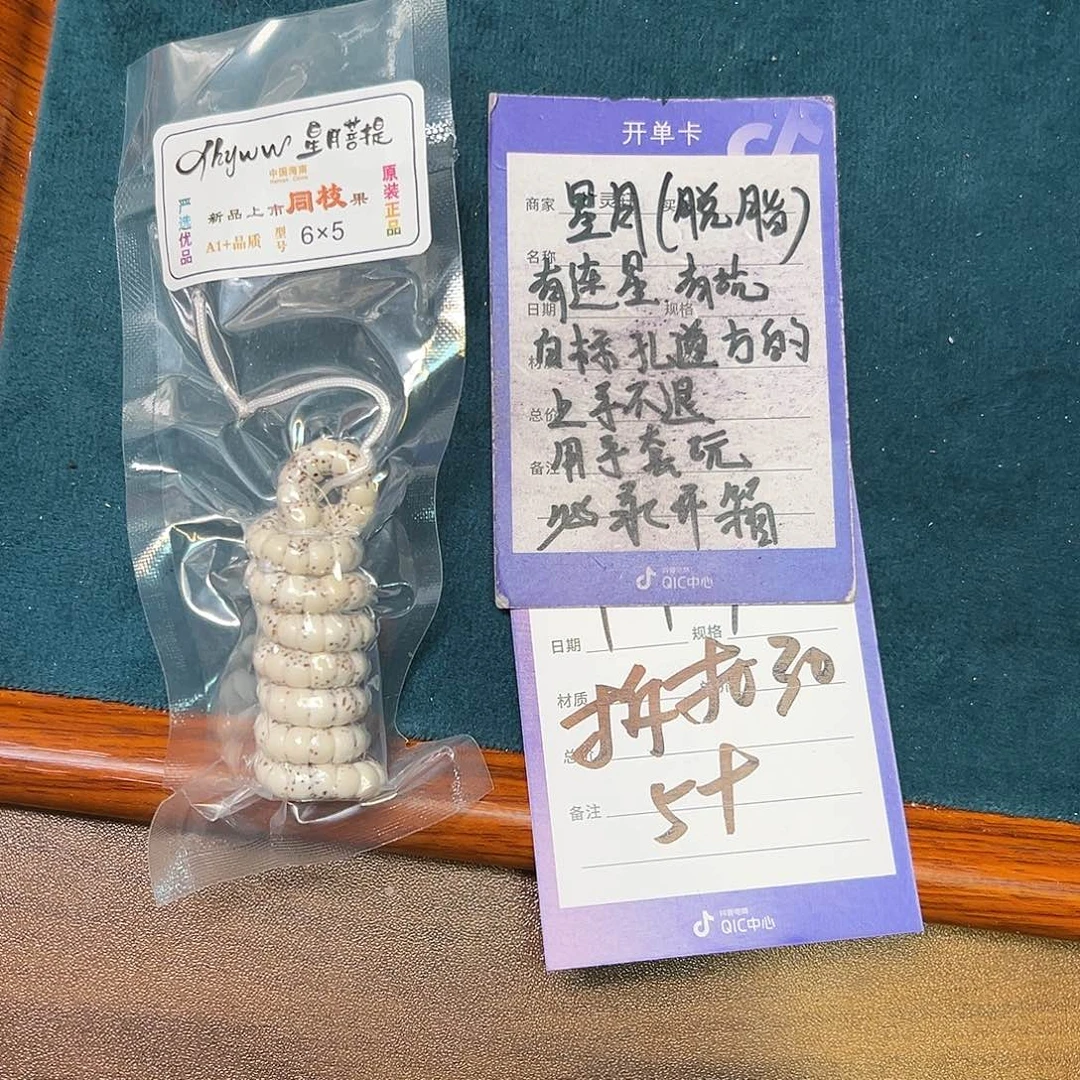 星月菩提
中国海南
严选优品
新品上市同枝果
A1+品质 型号 6×5
原装正品
开单卡
商家
星月(脱脂)
名称
有连星 有坑
日期 规格
白标孔道方的
总价
上手不退
备注
用手套玩
必录开箱
抖音电商
QIC中心
日期 规格
材质
拆扣30
备注
抖音电商
QIC中心